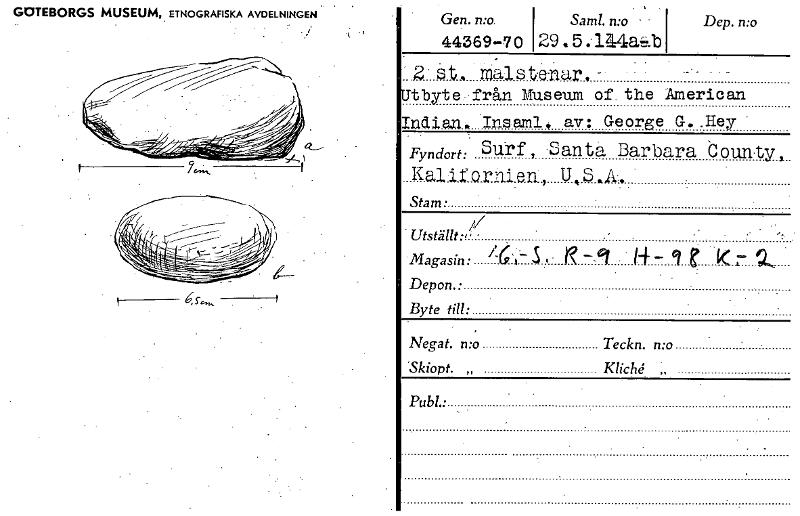 GÖTEBORGS MUSEUM, ETNOGRAFISKA AVDELNINGEN
a
9cm
b
6,5cm
Gen. n:o
44369-70
Saml. n:o
29.5.144a-b
Dep. n:o
2 st. malstenar.
Utbyte från Museum of the American
Indian. Insaml. av: George G. Hey
Fyndort: Surf, Santa Barbara County,
Kalifornien, U.S.A.
Stam:
Utställt:
Magasin: G.-S. R-9 H-98 K-2
Depon.:
Byte till:
Negat. n:o Teckn. n:o
Skiopt. „ Kliché „
Publ.: